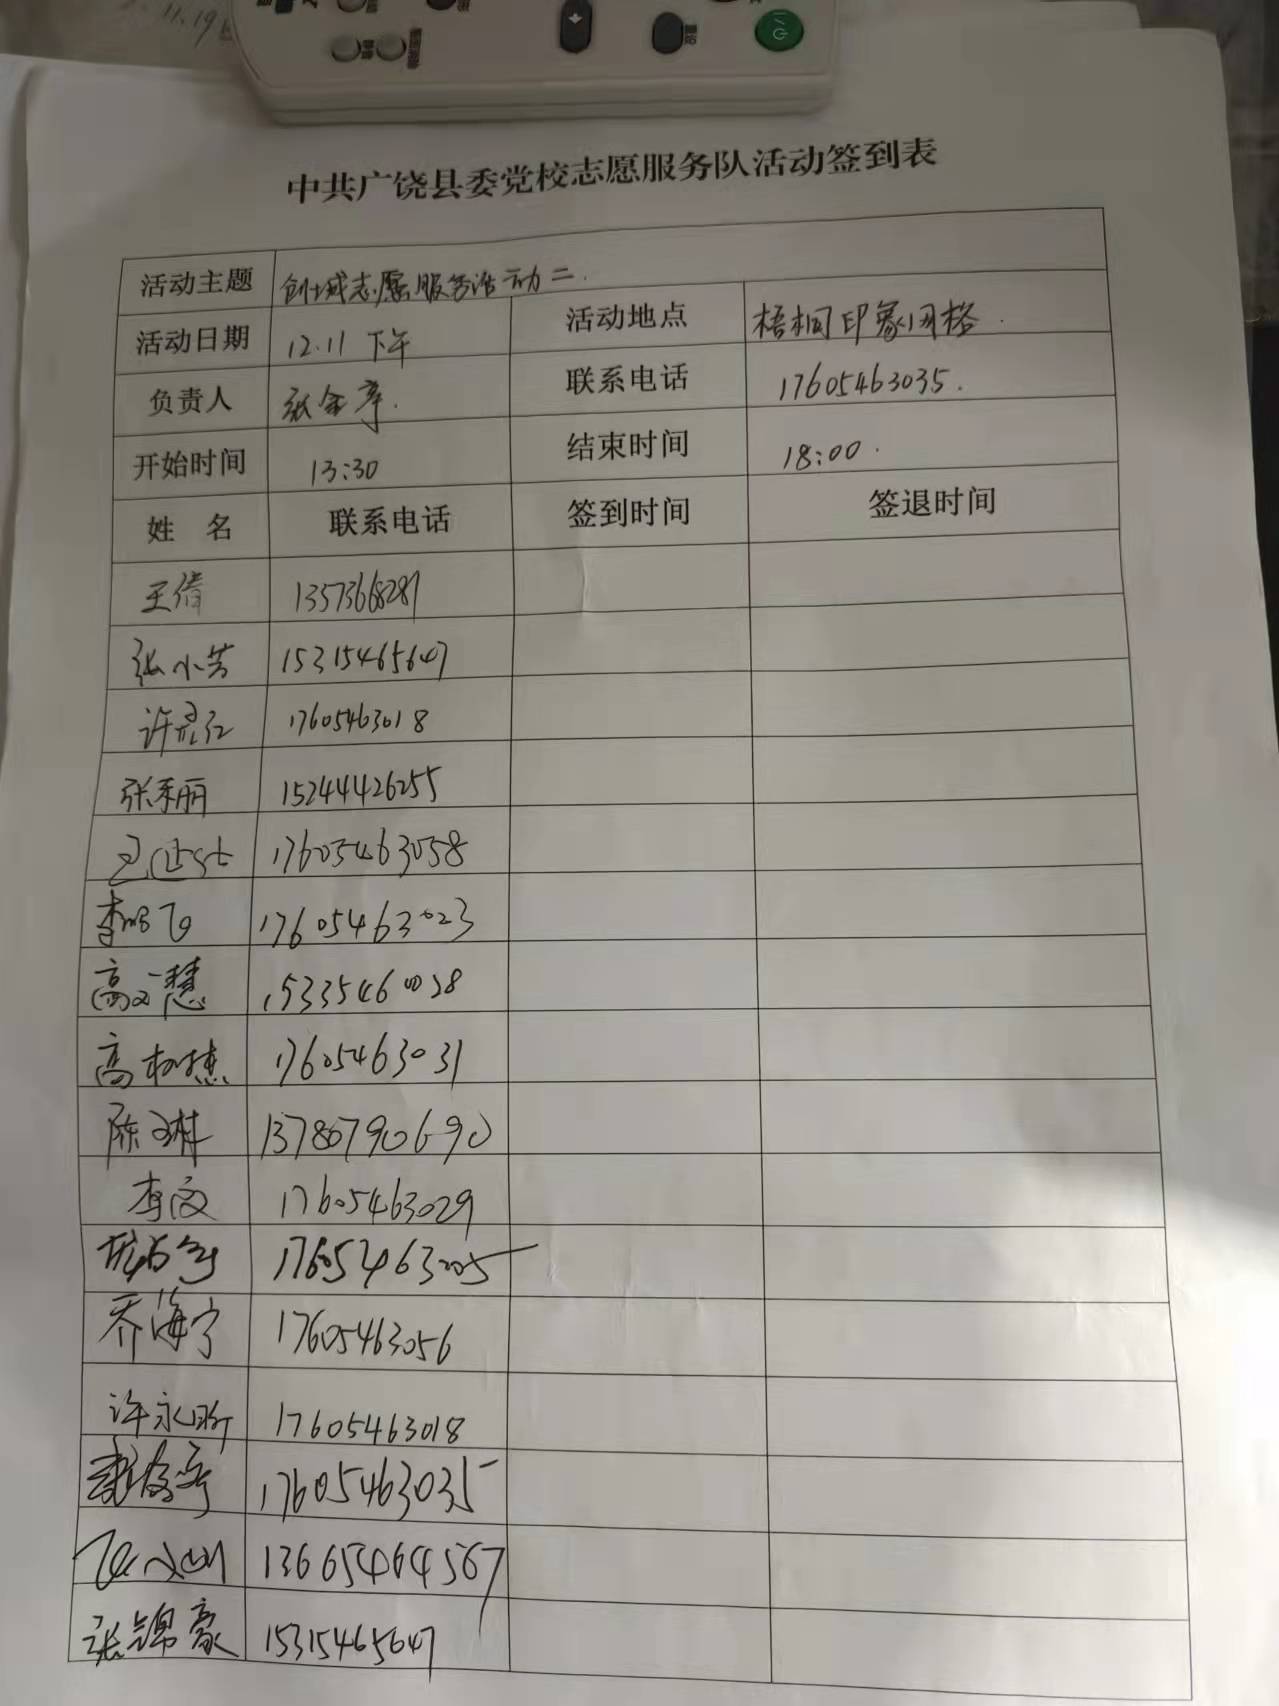 中共广饶县委党校志愿服务队活动签到表
活动主题 创城志愿服务活动二.
活动日期 12.11 下午 活动地点 梧桐印象网格.
负责人 张金亭. 联系电话 17605463035.
开始时间 13:30 结束时间 18:00.
姓 名 联系电话 签到时间 签退时间
王倩 13573668281
张小芳 15315465647
许 17605463018
张秉丽 15244426255
17605463058
李鹏飞 17605463023
高文慧 15335460028
高树杰 17605463031
陈文琳 13780790690
李 17605463029
17605463005
乔海宁 17605463056
许永昕 17605463018
17605463035
13665464567
张锦豪 15315465647